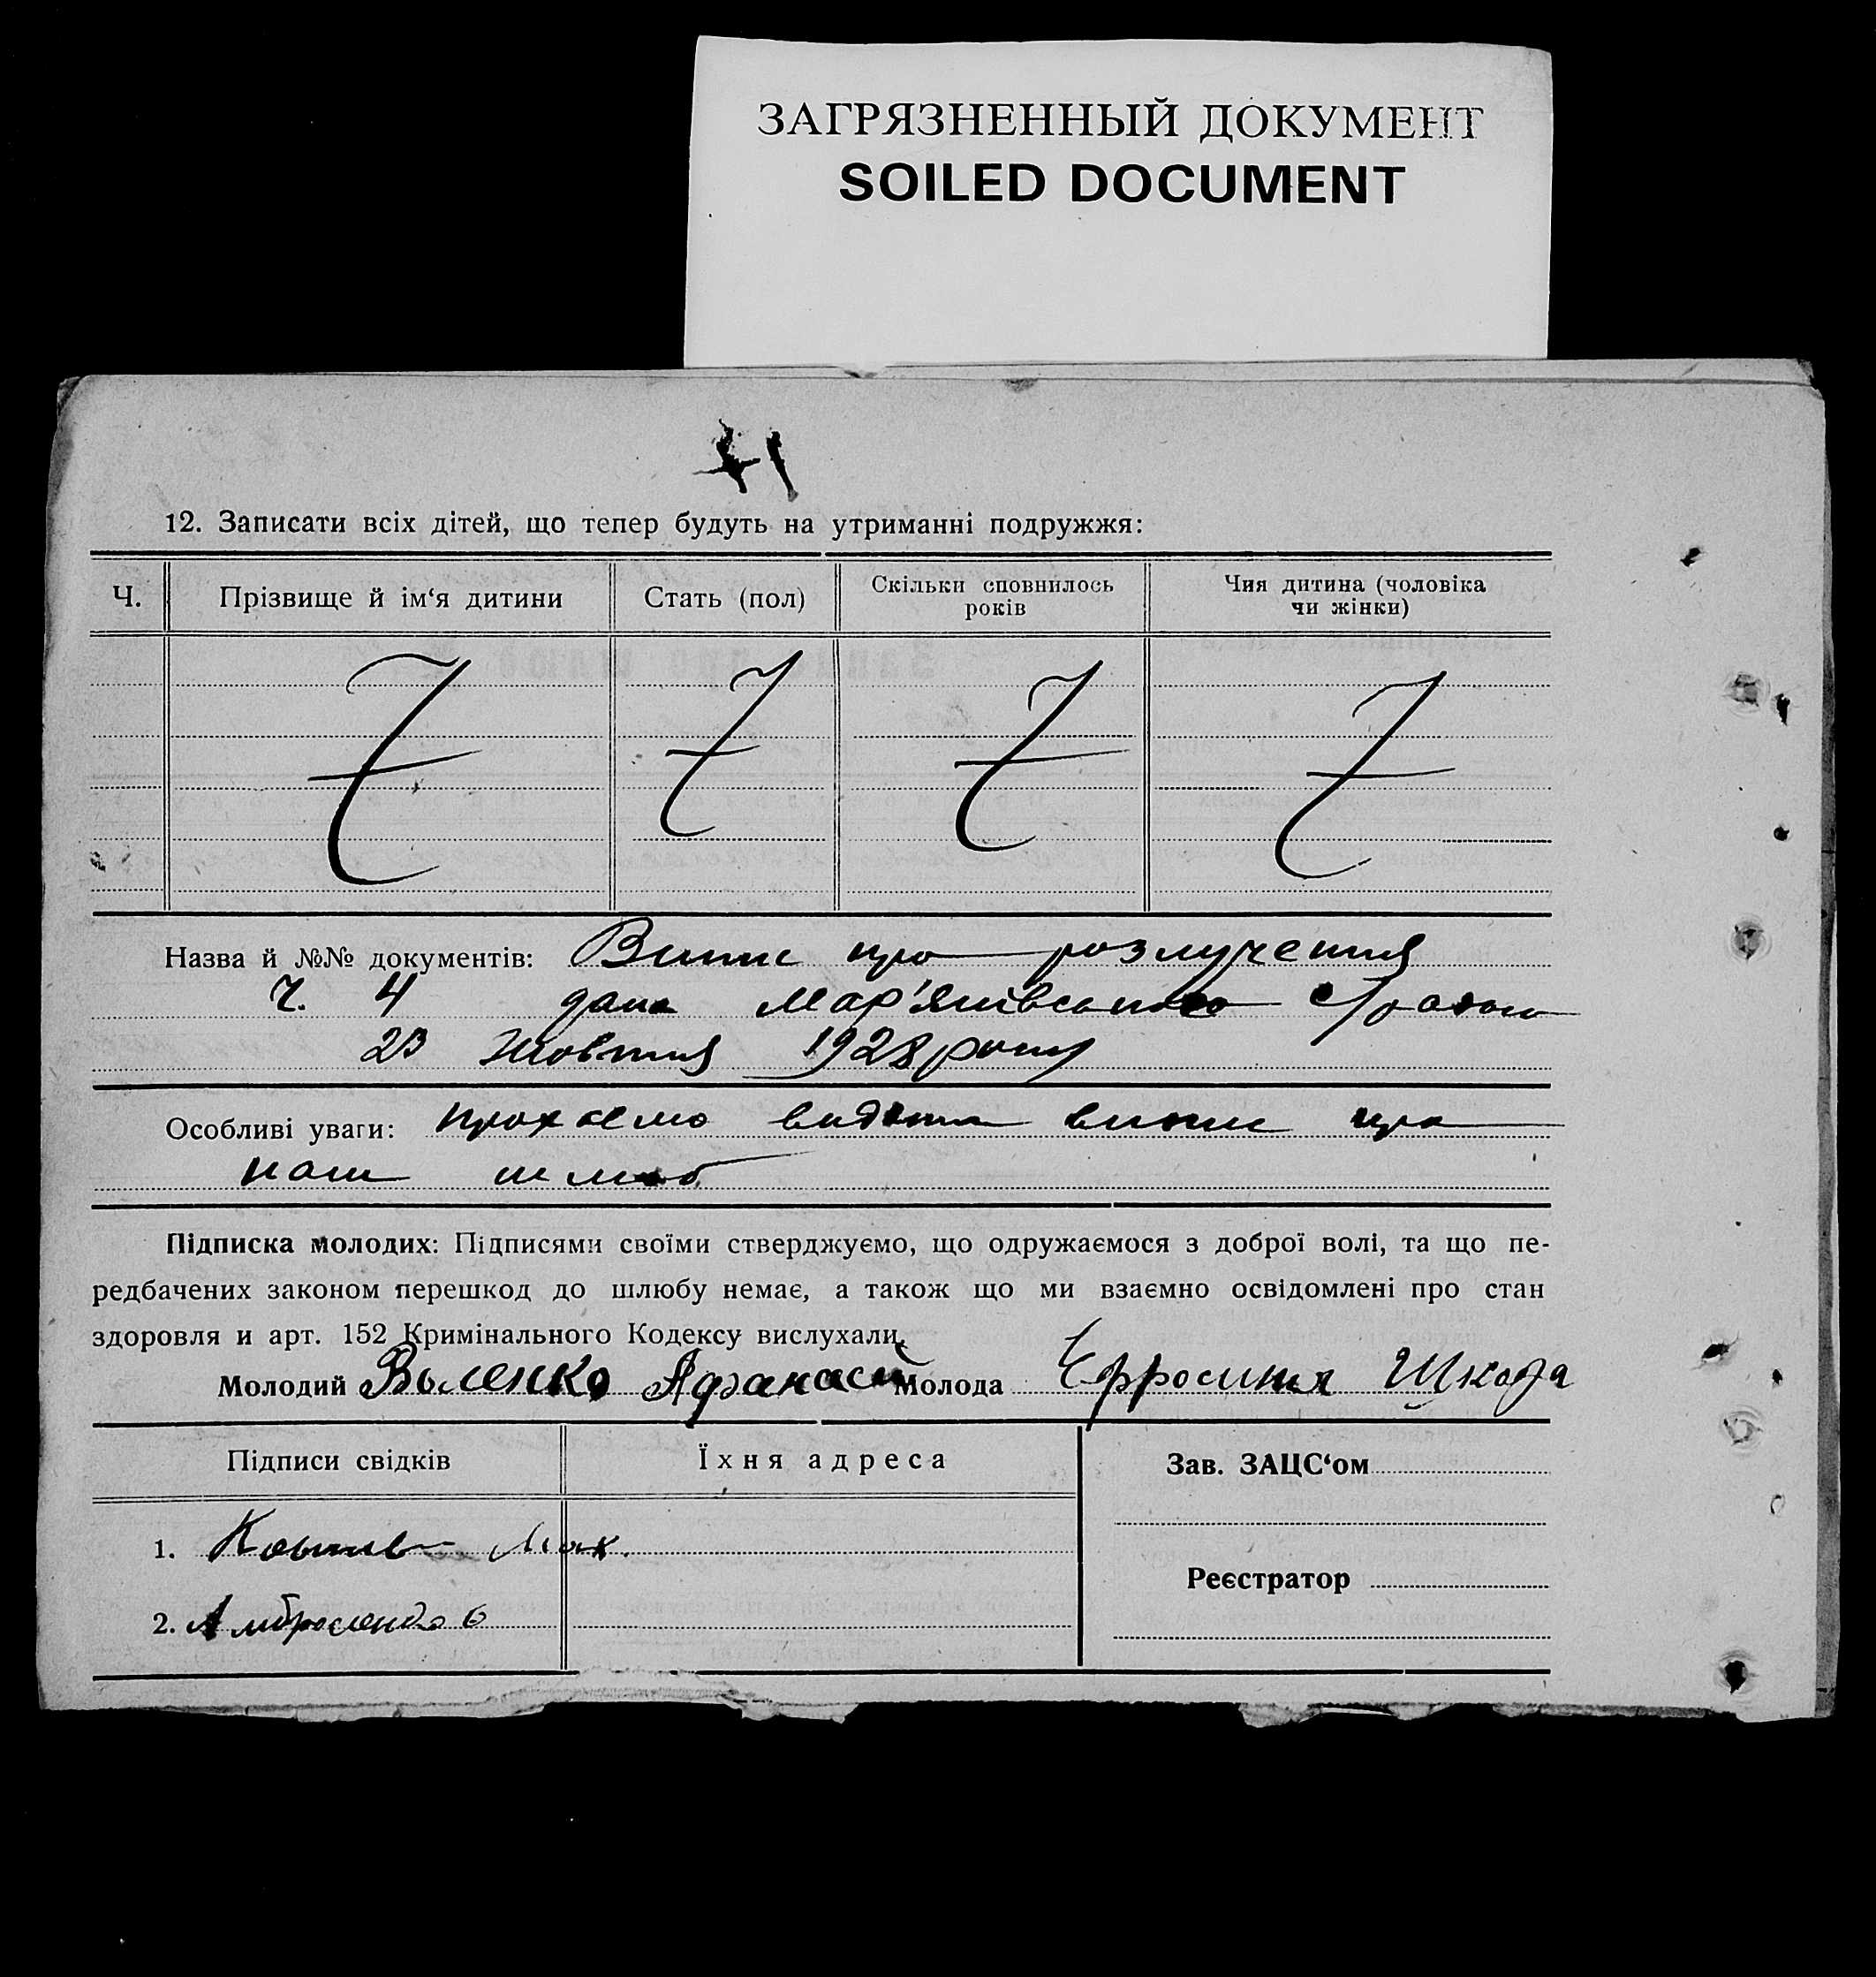 ЗАГРЯЗНЕННЫЙ ДОКУМЕНТ
SOILED DOCUMENT
12. Записати всіх дітей, що тепер будуть на утриманні подружжя:
Ч. Прізвище й ім‘я дитини Стать (пол) Скільки сповнилось років Чия дитина (чоловіка чи жінки)
Назва й №№ документів: Випис про розлучення
Ч. 4 дана Мар'янівською
23 жовтня 1928 року
Особливі уваги: прохаємо видати випис про
наш шлюб
Підписка молодих: Підписями своїми стверджуємо, що одружаємося з доброї волі, та що пе-
редбачених законом перешкод до шлюбу немає, а також що ми взаємно освідомлені про стан
здоровля и арт. 152 Кримінального Кодексу вислухали.
Молодий Афанасий Молода Ефросиния Шкода
Підписи свідків Їхня адреса Зав. ЗАЦС‘ом
1.
Реєстратор
2.